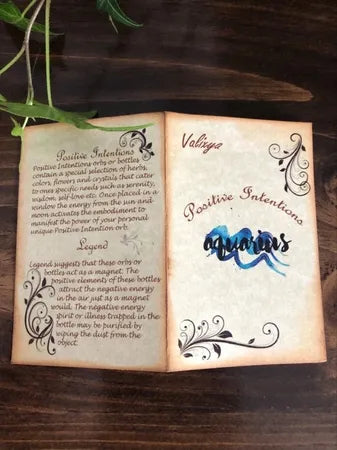 Positive Intentions
Positive Intentions orbs or bottles
contain a special selection of herbs,
colors, flowers and crystals that cater
to ones specific needs such as serenity,
wisdom, self-love etc. Once placed in a
window the energy from the sun and
moon activates the embodiment to
manifest the power of your personal
unique Positive Intention orb.
Legend
Legend suggests that these orbs or
bottles act as a magnet. The
positive elements of these bottles
attract the negative energy
in the air just as a magnet
would. The negative energy
spirit or illness trapped in the
bottle may be purified by
wiping the dust from the
object.
Valixya
Positive Intentions
aquarius